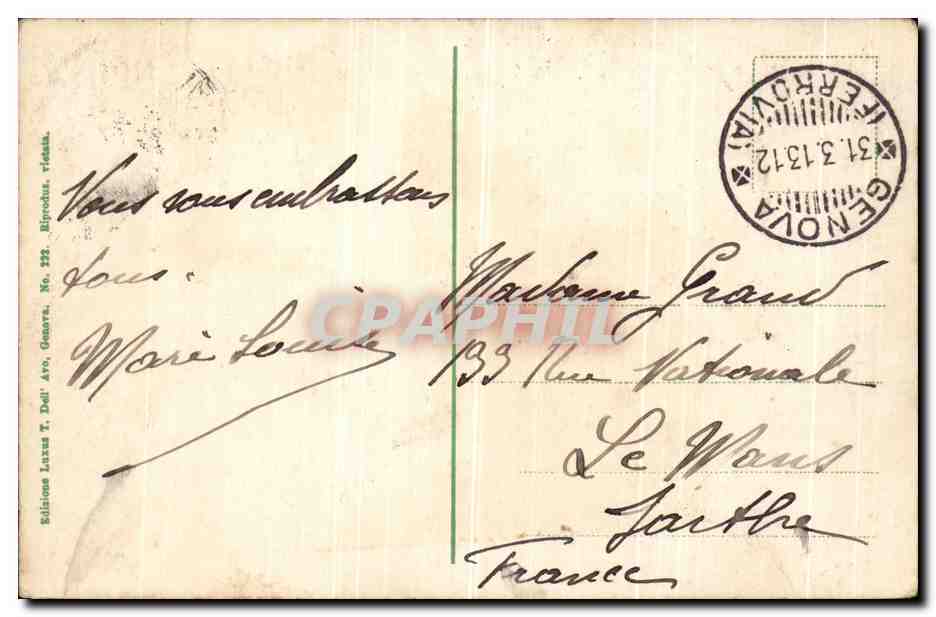 Edizione Luxus T. Dell' Avo, Genova. No. 222. Riprodus. vietata.
Vous vous embrassons
tous.
Marie Louise
GENOVA
(FERROVIA)
31.3.13.12
Madame Grand
133 Rue Nationale
Le Mans
Sarthe
France
CPAPHIL